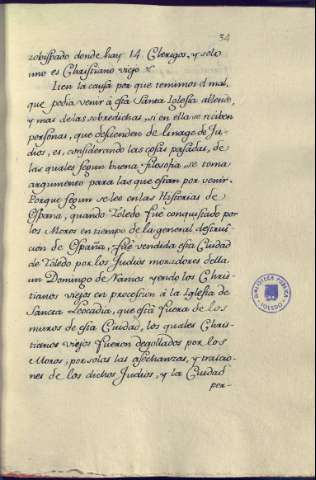 34
zobispado donde hay 14. Clerigos, y solo
uno es Christiano viejo x.
Iten la causa por que tenimos el mal,
que podia venir à esta Santa Iglesia allende,
y mas de las sobredichas, si en ella se reciben
personas, que descienden de linage de Ju-
dios, es, considerando las cosas pasadas, de
las quales segun buena filosofia se toma
argumento para las que estan por venir.
Porque segun se lee en las Historias de
España, quando Toledo fue conquistado por
los Moros en tiempo de la general destruc-
cion de España, fue vendida esta Ciudad
de Toledo por los Judios moradores della
un Domingo de Ramos yendo los Chris-
tianos viejos en procesion à la Iglesia de
Sancta Leocadia, que està fuera de los
muros de esta Ciudad, los quales Chris-
tianos viejos fueron degollados por los
Moros, por solas las asechanzas, y traicio-
nes de los dichos Judios, y la Ciudad
per-
BIBLIOTECA PUBLICA
TOLEDO